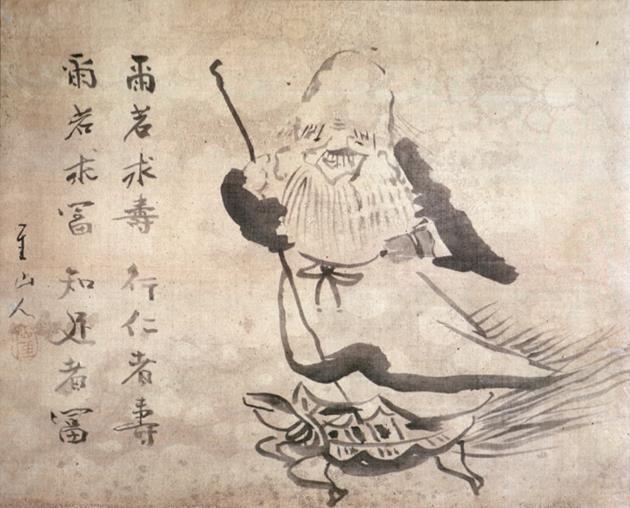 爾若求壽 行仁者壽
爾若求冨 知足者冨
山人